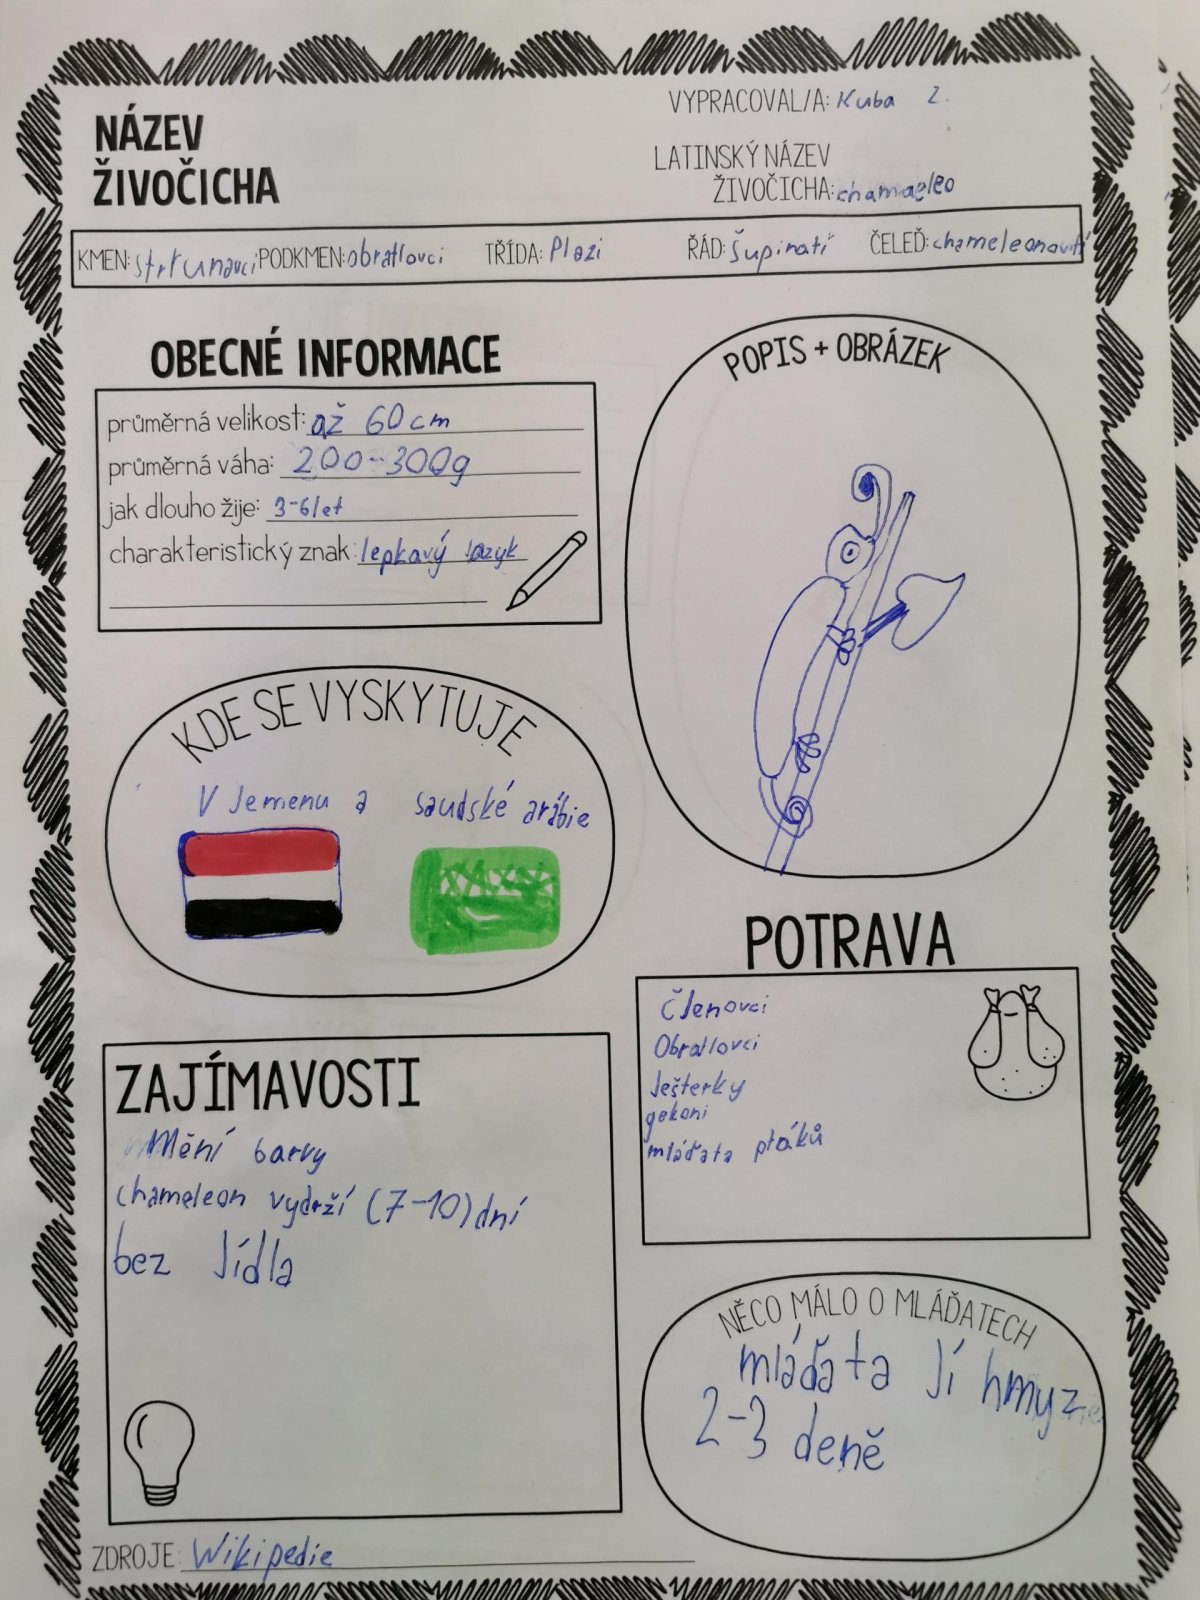 VYPRACOVAL/A: Kuba Z.
NÁZEV
ŽIVOČICHA
LATINSKÝ NÁZEV
ŽIVOČICHA: chamaeleo
KMEN: strunavci PODKMEN: obratlovci TŘÍDA: Plazi ŘÁD: Šupinatí ČELEĎ: chameleonovití
OBECNÉ INFORMACE
průměrná velikost: až 60 cm
průměrná váha: 200-300g
jak dlouho žije: 3-6 let
charakteristický znak: lepkavý jazyk
POPIS + OBRÁZEK
KDE SE VYSKYTUJE
V Jemenu a saudské arábie
POTRAVA
Členovci
Obratlovci
Ještěrky
gekoni
mláďata ptáků
ZAJÍMAVOSTI
Mění barvy
chameleon vydrží (7-10) dní
bez Jídla
NĚCO MÁLO O MLÁĎATECH
mláďata Jí hmyz
2-3 deně
ZDROJE: Wikipedie